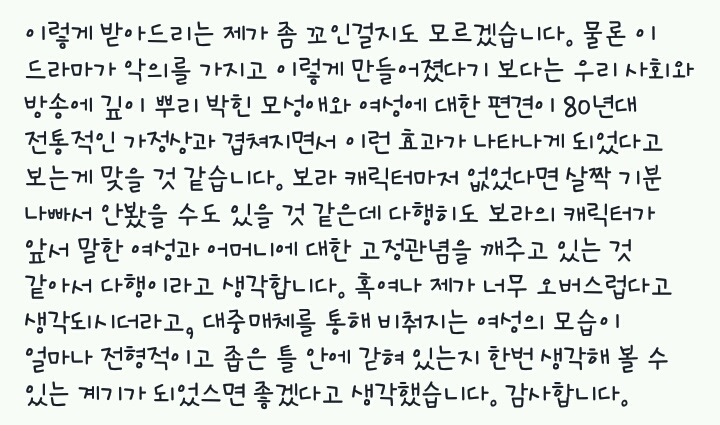 이렇게 받아드리는 제가 좀 꼬인걸지도 모르겠습니다. 물론 이
드라마가 악의를 가지고 이렇게 만들어졌다기 보다는 우리 사회와
방송에 깊이 뿌리 박힌 모성애와 여성에 대한 편견이 80년대
전통적인 가정상과 겹쳐지면서 이런 효과가 나타나게 되었다고
보는게 맞을 것 같습니다. 보라 캐릭터마저 없었다면 살짝 기분
나빠서 안봤을 수도 있을 것 같은데 다행히도 보라의 캐릭터가
앞서 말한 여성과 어머니에 대한 고정관념을 깨주고 있는 것
같아서 다행이라고 생각합니다. 혹여나 제가 너무 오버스럽다고
생각되시더라고, 대중매체를 통해 비춰지는 여성의 모습이
얼마나 전형적이고 좁은 틀 안에 갇혀 있는지 한번 생각해 볼 수
있는 계기가 되었스면 좋겠다고 생각했습니다. 감사합니다.